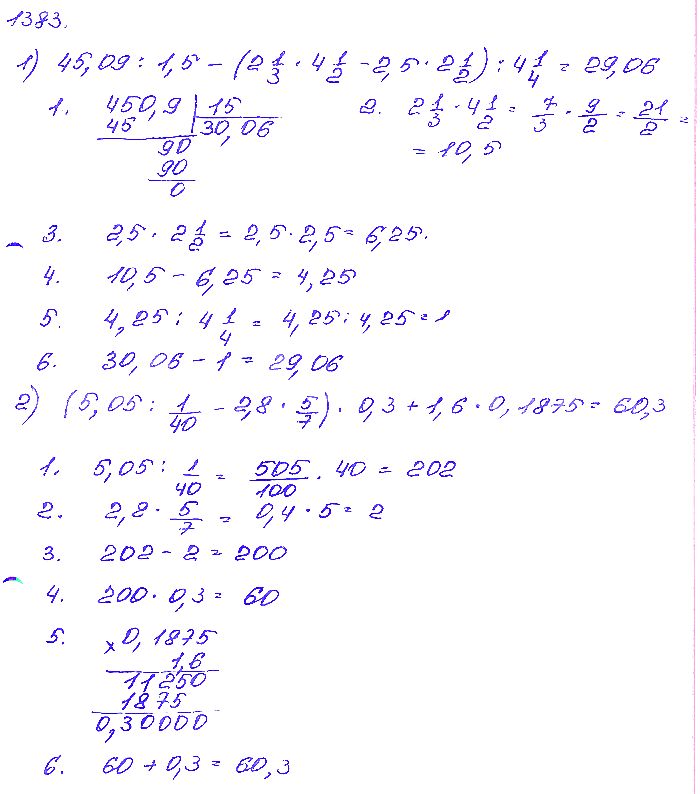 1383.
1) 45,09 : 1,5 - (2 1/3 · 4 1/2 - 2,5 · 2 1/2) : 4 1/4 = 29,06
1. 450,9 | 15
45 30,06
90
90
0
2. 2 1/3 · 4 1/2 = 7/3 · 9/2 = 21/2 =
= 10,5
3. 2,5 · 2 1/2 = 2,5 · 2,5 = 6,25.
4. 10,5 - 6,25 = 4,25
5. 4,25 : 4 1/4 = 4,25 : 4,25 = 1
6. 30,06 - 1 = 29,06
2) (5,05 : 1/40 - 2,8 · 5/7) · 0,3 + 1,6 · 0,1875 = 60,3
1. 5,05 : 1/40 = 505/100 · 40 = 202
2. 2,8 · 5/7 = 0,4 · 5 = 2
3. 202 - 2 = 200
4. 200 · 0,3 = 60
5. × 0,1875
1,6
11250
1875
0,30000
6. 60 + 0,3 = 60,3